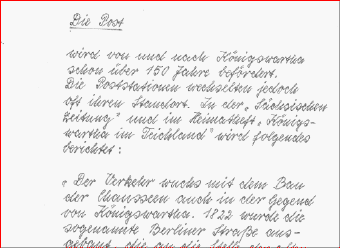 Die Post
wird von und nach Königswartha
schon über 150 Jahre befördert.
Die Poststationen wechselten jedoch
oft ihren Standort. In der „Sächsischen
Zeitung" und im Heimatheft „Königs-
wartha im Teichland" wird folgendes
berichtet:
„Der Verkehr wuchs mit dem Bau
der Chausseen auch in der Gegend
von Königswartha. 1822 wurde die
sogenannte Berliner Straße aus-
gebaut, die an die Stelle der alten